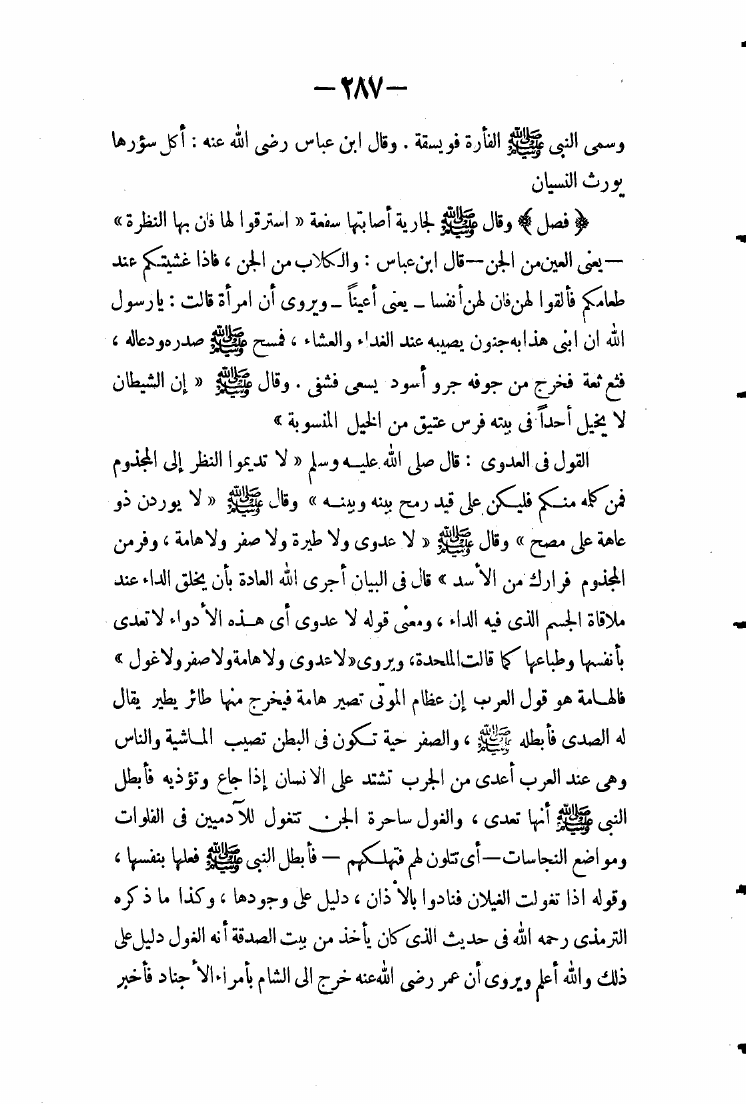 — ٢٨٧ —
وسمى النبى ﷺ الفأرة فويسقة . وقال ابن عباس رضى الله عنه : أكل سؤرها
يورث النسيان
﴿ فصل ﴾ وقال ﷺ لجارية أصابتها سفعة « استرقوا لها فان بها النظرة »
—يعنى العين من الجن—قال ابن عباس : والكلاب من الجن ، فاذا غشيتكم عند
طعامكم فألقوا لهن فان لهن أنفسا — يعنى أعيناً — ويروى أن امرأة قالت : يارسول
الله ان ابنى هذا به جنون يصيبه عند الغداء والعشاء ، فمسح ﷺ صدره ودعاله ،
فثع ثعة فخرج من جوفه جرو أسود يسعى فشفى . وقال ﷺ « إن الشيطان
لا يخيل أحداً فى بيته فرس عتيق من الخيل المنسوبة »
القول فى العدوى : قال صلى الله عليه وسلم « لا تديموا النظر إلى المجذوم
فمن كلمه منكم فليكن على قيد رمح بينه وبينه » وقال ﷺ « لا يوردن ذو
عاهة على مصح » وقال ﷺ « لا عدوى ولا طيرة ولا صفر ولا هامة ، وفر من
المجذوم فرارك من الأسد » قال فى البيان أجرى الله العادة بأن يخلق الداء عند
ملاقاة الجسم الذى فيه الداء ، ومعنى قوله لا عدوى أى هذه الأدواء لا تعدى
بأنفسها وطباعها كما قالت الملحدة، ويروى «لا عدوى ولا هامة ولا صفر ولا غول »
فالهامة هو قول العرب إن عظام الموتى تصير هامة فيخرج منها طائر يطير يقال
له الصدى فأبطله ﷺ ، والصفر حية تكون فى البطن تصيب الماشية والناس
وهى عند العرب أعدى من الجرب تشتد على الانسان إذا جاع وتؤذيه فأبطل
النبى ﷺ أنها تعدى ، والغول ساحرة الجن تتغول للآدميين فى الفلوات
ومواضع النجاسات—أى تتلون لهم فتهلكهم — فأبطل النبى ﷺ فعلها بنفسها ،
وقوله اذا تغولت الغيلان فنادوا بالأذان ، دليل على وجودها ، وكذا ما ذكره
الترمذى رحمه الله فى حديث الذى كان يأخذ من بيت الصدقة أنه الغول دليل على
ذلك والله أعلم ويروى أن عمر رضى الله عنه خرج الى الشام بأمراء الأجناد فأخبر